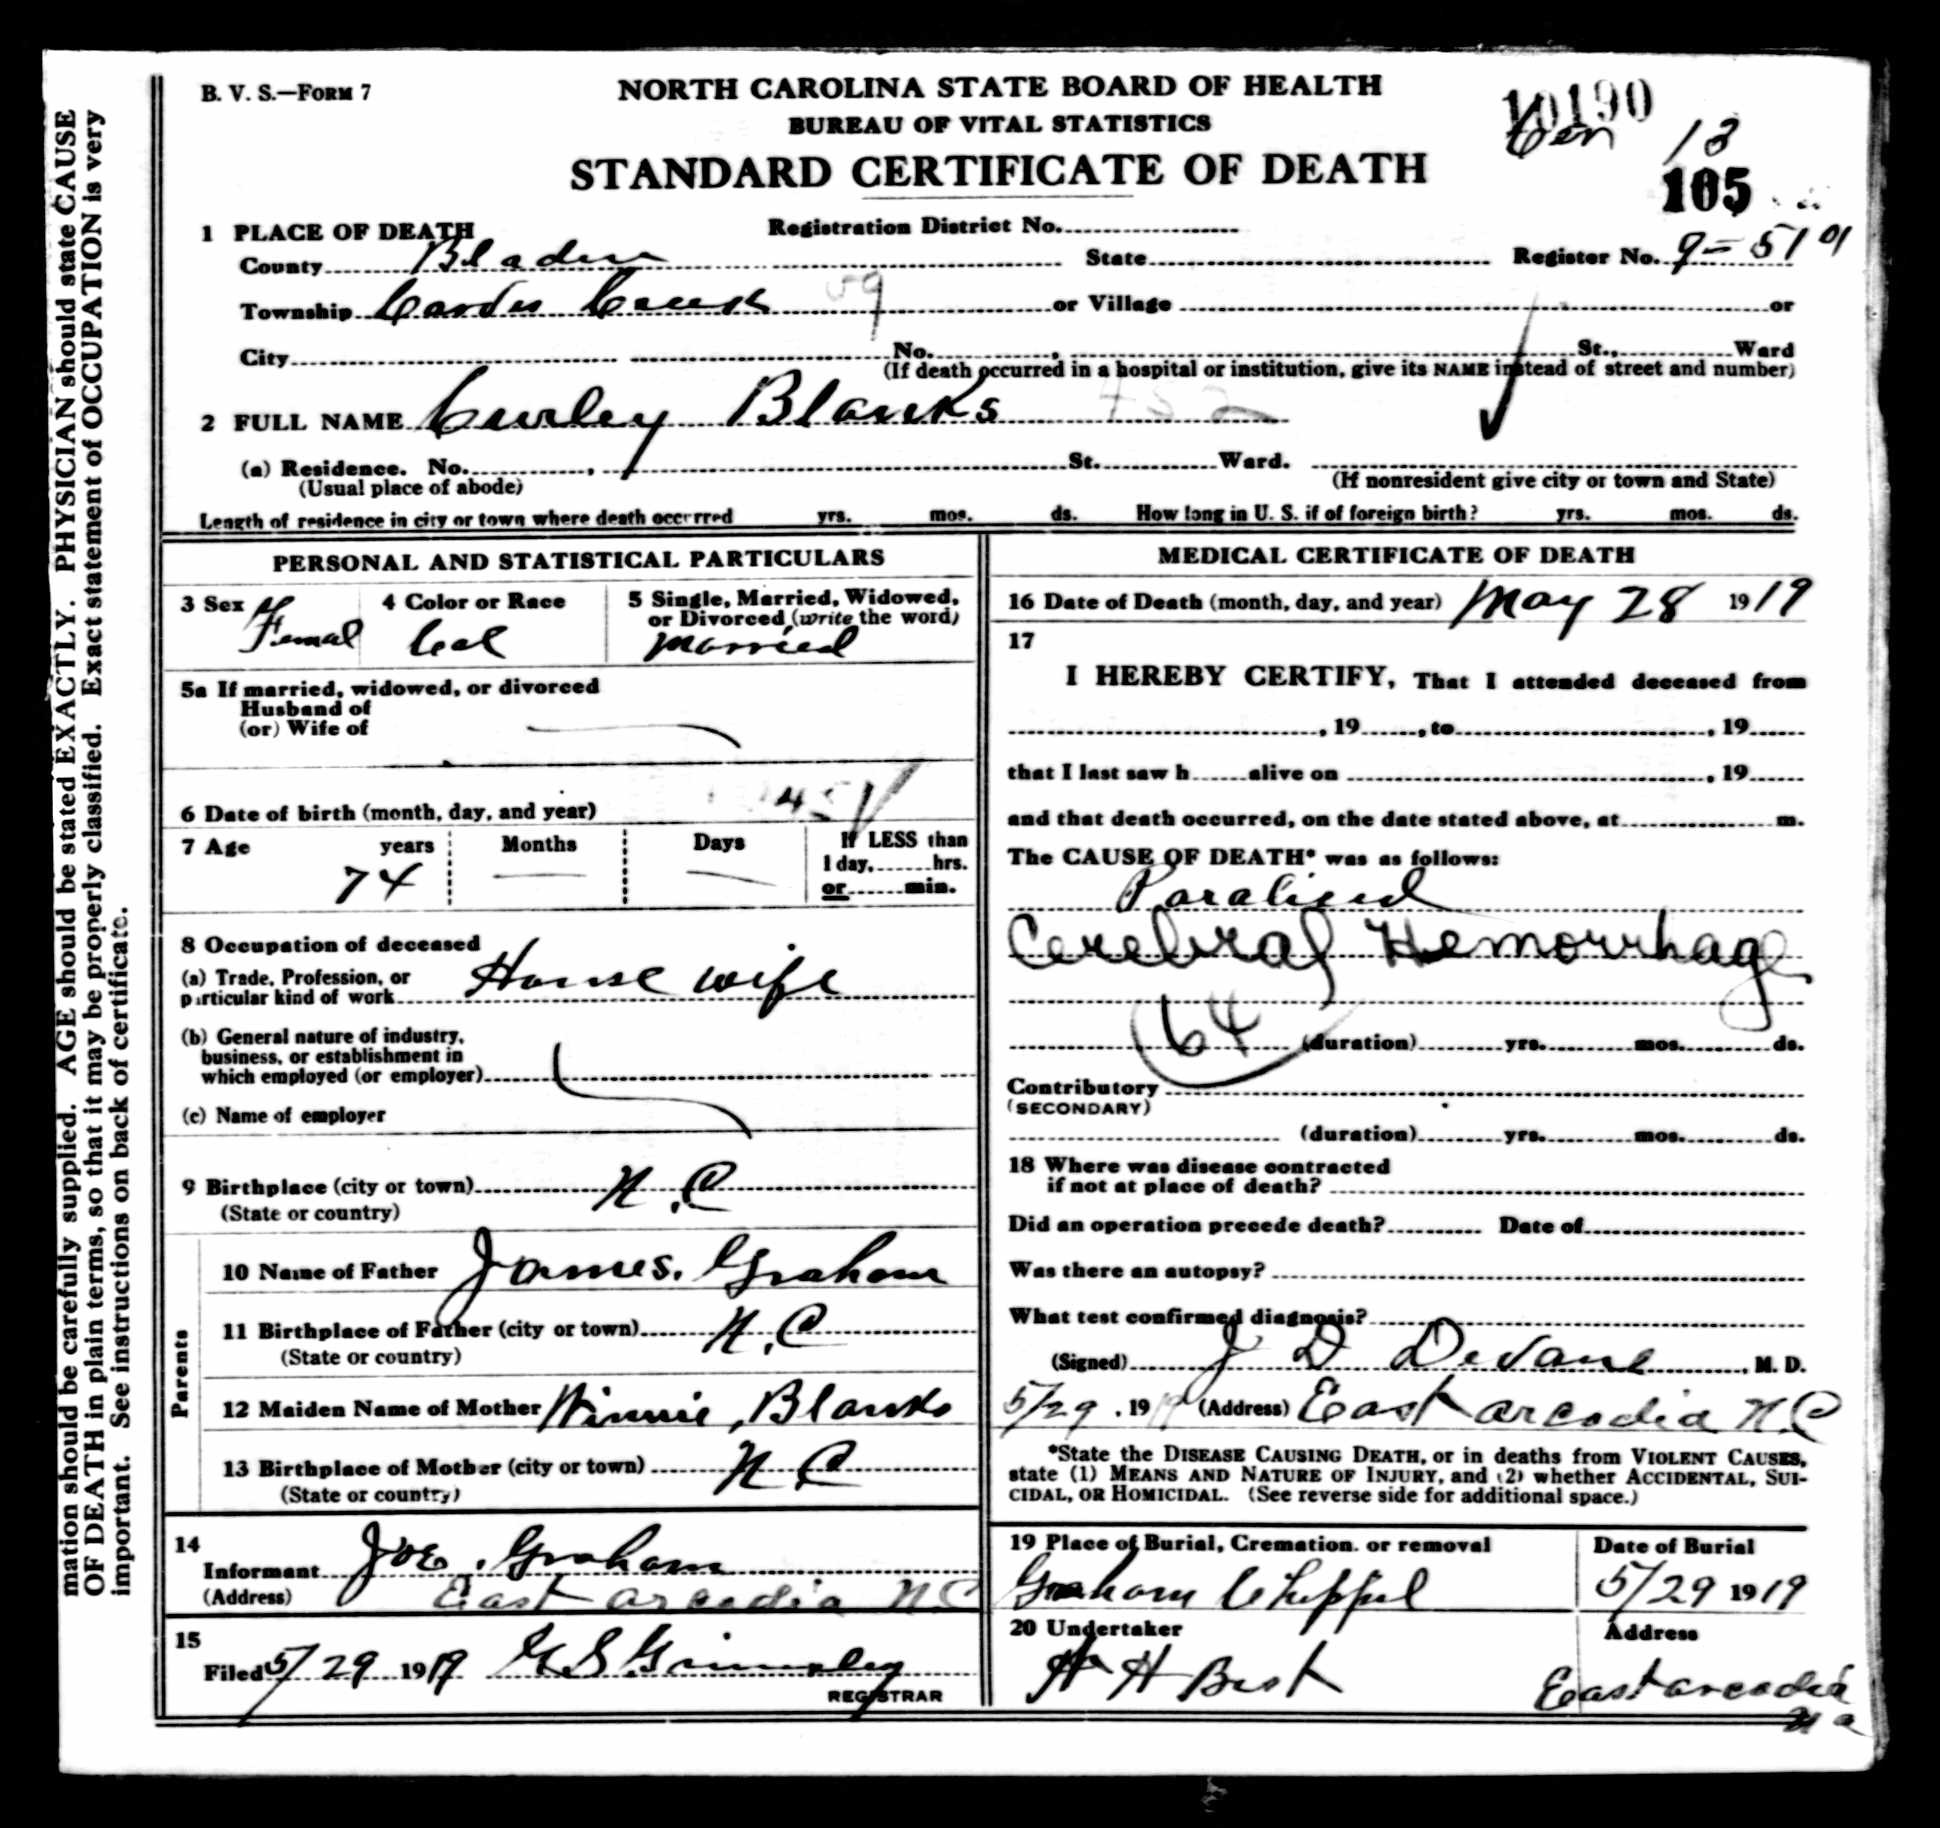 mation should be carefully supplied. AGE should be stated EXACTLY. PHYSICIAN should state CAUSE
OF DEATH in plain terms, so that it may be properly classified. Exact statement of OCCUPATION is very
important. See instructions on back of certificate.
B. V. S.—FORM 7
NORTH CAROLINA STATE BOARD OF HEALTH
BUREAU OF VITAL STATISTICS
STANDARD CERTIFICATE OF DEATH
10190
13
105
1 PLACE OF DEATH Registration District No.
County Bladen State Register No. 9-51
Township Carvers Creek 59 or Village or
City No. , St., Ward
(If death occurred in a hospital or institution, give its NAME instead of street and number)
2 FULL NAME Curley Blanks 452
(a) Residence. No. , St. Ward.
(Usual place of abode) (If nonresident give city or town and State)
Length of residence in city or town where death occurred yrs. mos. ds. How long in U. S. if of foreign birth? yrs. mos. ds.
PERSONAL AND STATISTICAL PARTICULARS
3 Sex Femal
4 Color or Race Col
5 Single, Married, Widowed,
or Divorced (write the word)
Married
5a If married, widowed, or divorced
Husband of
(or) Wife of
6 Date of birth (month, day, and year) 45
7 Age years Months Days If LESS than
1 day, hrs.
74 or min.
8 Occupation of deceased
(a) Trade, Profession, or
particular kind of work House wife
(b) General nature of industry,
business, or establishment in
which employed (or employer)
(c) Name of employer
9 Birthplace (city or town) N.C
(State or country)
Parents
10 Name of Father James. Graham
11 Birthplace of Father (city or town) N.C
(State or country)
12 Maiden Name of Mother Winnie, Blanks
13 Birthplace of Mother (city or town) N C
(State or country)
14
Informant Joe. Graham
(Address) East Arcadia N C
15
Filed 5/29 1919 G S Grimsley
REGISTRAR
MEDICAL CERTIFICATE OF DEATH
16 Date of Death (month, day, and year) May 28 1919
17
I HEREBY CERTIFY, That I attended deceased from
, 19 , to , 19
that I last saw h alive on , 19
and that death occurred, on the date stated above, at m.
The CAUSE OF DEATH* was as follows:
Paralised
Cerebral Hemorrhage
64 (duration) yrs. mos. ds.
Contributory
(SECONDARY)
(duration) yrs. mos. ds.
18 Where was disease contracted
if not at place of death?
Did an operation precede death? Date of
Was there an autopsy?
What test confirmed diagnosis?
(Signed) J D Devane , M. D.
5/29 , 1919 (Address) East Arcadia N.C
*State the DISEASE CAUSING DEATH, or in deaths from VIOLENT CAUSES,
state (1) MEANS AND NATURE OF INJURY, and (2) whether ACCIDENTAL, SUI-
CIDAL, OR HOMICIDAL. (See reverse side for additional space.)
19 Place of Burial, Cremation. or removal
Graham Chappel
Date of Burial
5/29 1919
20 Undertaker
H H Best
Address
East Arcadia
N C